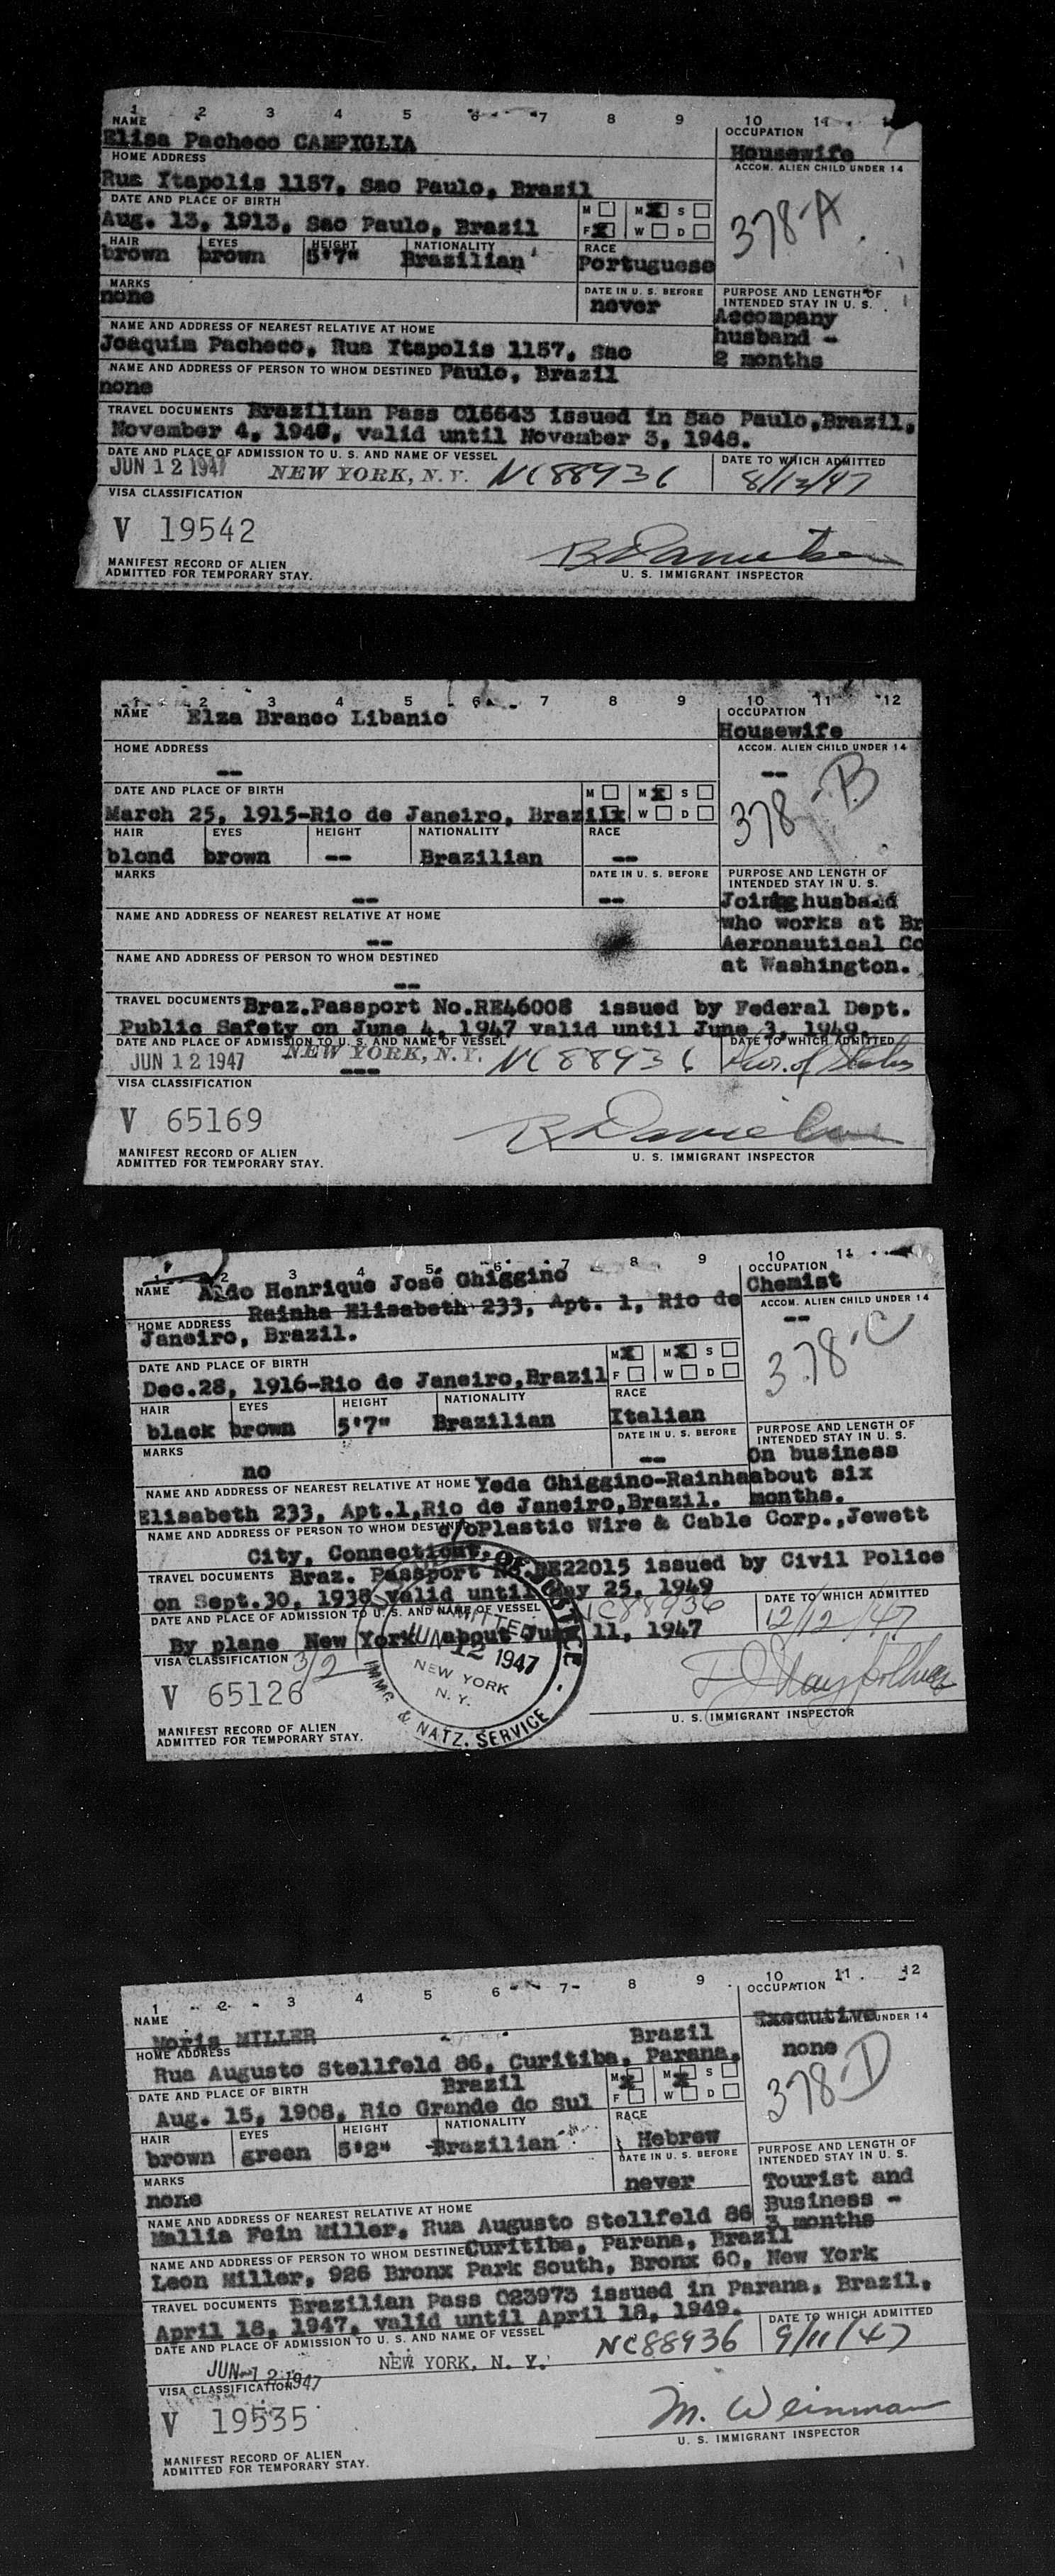 1 2 3 4 5 6 7 8 9 10 11
NAME
OCCUPATION
Elisa Pacheco CAMPIGLIA
Housewife
HOME ADDRESS
ACCOM. ALIEN CHILD UNDER 14
Rua Itapolis 1157, Sao Paulo, Brazil
378-A
DATE AND PLACE OF BIRTH
M M X S
Aug. 13, 1913, Sao Paulo, Brazil
F X W D
HAIR EYES HEIGHT NATIONALITY RACE
brown brown 5'7" Brazilian Portuguese
MARKS
DATE IN U. S. BEFORE
PURPOSE AND LENGTH OF
INTENDED STAY IN U. S.
none
never
Accompany
husband -
2 months
NAME AND ADDRESS OF NEAREST RELATIVE AT HOME
Joaquim Pacheco, Rua Itapolis 1157, Sao
NAME AND ADDRESS OF PERSON TO WHOM DESTINED Paulo, Brazil
none
TRAVEL DOCUMENTS Brazilian Pass 016643 issued in Sao Paulo,Brazil,
November 4, 1946, valid until November 3, 1948.
DATE AND PLACE OF ADMISSION TO U. S. AND NAME OF VESSEL
DATE TO WHICH ADMITTED
JUN 12 1947 NEW YORK, N.Y. NC88936 8/12/47
VISA CLASSIFICATION
V 19542
MANIFEST RECORD OF ALIEN
ADMITTED FOR TEMPORARY STAY.
U. S. IMMIGRANT INSPECTOR
1 2 3 4 5 6 7 8 9 10 11 12
NAME Elza Branco Libanio
OCCUPATION
Housewife
HOME ADDRESS
ACCOM. ALIEN CHILD UNDER 14
--
--
378-B
DATE AND PLACE OF BIRTH
M M X S
March 25, 1915-Rio de Janeiro, Brazil x W D
HAIR EYES HEIGHT NATIONALITY RACE
blond brown -- Brazilian --
MARKS
DATE IN U. S. BEFORE
PURPOSE AND LENGTH OF
INTENDED STAY IN U. S.
--
--
Joining husband
who works at Br
Aeronautical Co
at Washington.
NAME AND ADDRESS OF NEAREST RELATIVE AT HOME
--
NAME AND ADDRESS OF PERSON TO WHOM DESTINED
--
TRAVEL DOCUMENTS Braz.Passport No.RE46008 issued by Federal Dept.
Public Safety on June 4, 1947 valid until June 3, 1949.
DATE AND PLACE OF ADMISSION TO U. S. AND NAME OF VESSEL
DATE TO WHICH ADMITTED
JUN 12 1947 NEW YORK, N.Y. NC88936 Dur. of Status
---
VISA CLASSIFICATION
V 65169
R Danielson
MANIFEST RECORD OF ALIEN
ADMITTED FOR TEMPORARY STAY.
U. S. IMMIGRANT INSPECTOR
1 2 3 4 5 6 7 8 9 10 11
NAME Aldo Henrique José Ghiggino
OCCUPATION
Chemist
HOME ADDRESS Rainha Elisabeth 233, Apt. 1, Rio de
Janeiro, Brazil.
ACCOM. ALIEN CHILD UNDER 14
--
378-C
DATE AND PLACE OF BIRTH
M X M X S
Dec.28, 1916-Rio de Janeiro,Brazil F W D
HAIR EYES HEIGHT NATIONALITY RACE
black brown 5'7" Brazilian Italian
MARKS
DATE IN U. S. BEFORE
PURPOSE AND LENGTH OF
INTENDED STAY IN U. S.
no
--
On business
about six
months.
NAME AND ADDRESS OF NEAREST RELATIVE AT HOME Yeda Ghiggino-Rainha
Elisabeth 233, Apt.1,Rio de Janeiro,Brazil.
NAME AND ADDRESS OF PERSON TO WHOM DESTINED c/oPlastic Wire & Cable Corp.,Jewett
City, Connecticut.
TRAVEL DOCUMENTS Braz. Passport No.RE22015 issued by Civil Police
on Sept.30, 1938 valid until May 25, 1949
DATE AND PLACE OF ADMISSION TO U. S. AND NAME OF VESSEL NC88936
DATE TO WHICH ADMITTED
12/12/47
By plane New York about June 11, 1947
VISA CLASSIFICATION 3/2
V 65126
ADMITTED
JUN 12 1947
NEW YORK
N. Y.
IMMG & NATZ. SERVICE
MANIFEST RECORD OF ALIEN
ADMITTED FOR TEMPORARY STAY.
U. S. IMMIGRANT INSPECTOR
1 2 3 4 5 6 7 8 9 10 11 12
NAME
OCCUPATION
Moris MILLER
Executive
UNDER 14
HOME ADDRESS
Brazil
none
Rua Augusto Stellfeld 86, Curitiba, Parana,
378 D
DATE AND PLACE OF BIRTH Brazil
M X M X S
Aug. 15, 1908, Rio Grande do Sul F W D
HAIR EYES HEIGHT NATIONALITY RACE
brown green 5'2" Brazilian Hebrew
MARKS
DATE IN U. S. BEFORE
PURPOSE AND LENGTH OF
INTENDED STAY IN U. S.
none
never
Tourist and
Business -
3 months
NAME AND ADDRESS OF NEAREST RELATIVE AT HOME
Mallia Fein Miller, Rua Augusto Stellfeld 86
NAME AND ADDRESS OF PERSON TO WHOM DESTINED Curitiba, Parana, Brazil
Leon Miller, 926 Bronx Park South, Bronx 60, New York
TRAVEL DOCUMENTS Brazilian Pass 023973 issued in Parana, Brazil,
April 18, 1947, valid until April 18, 1949.
DATE AND PLACE OF ADMISSION TO U. S. AND NAME OF VESSEL
DATE TO WHICH ADMITTED
JUN 12 1947 NEW YORK, N. Y. NC88936 9/11/47
VISA CLASSIFICATION
V 19535
M. Weinman
MANIFEST RECORD OF ALIEN
ADMITTED FOR TEMPORARY STAY.
U. S. IMMIGRANT INSPECTOR